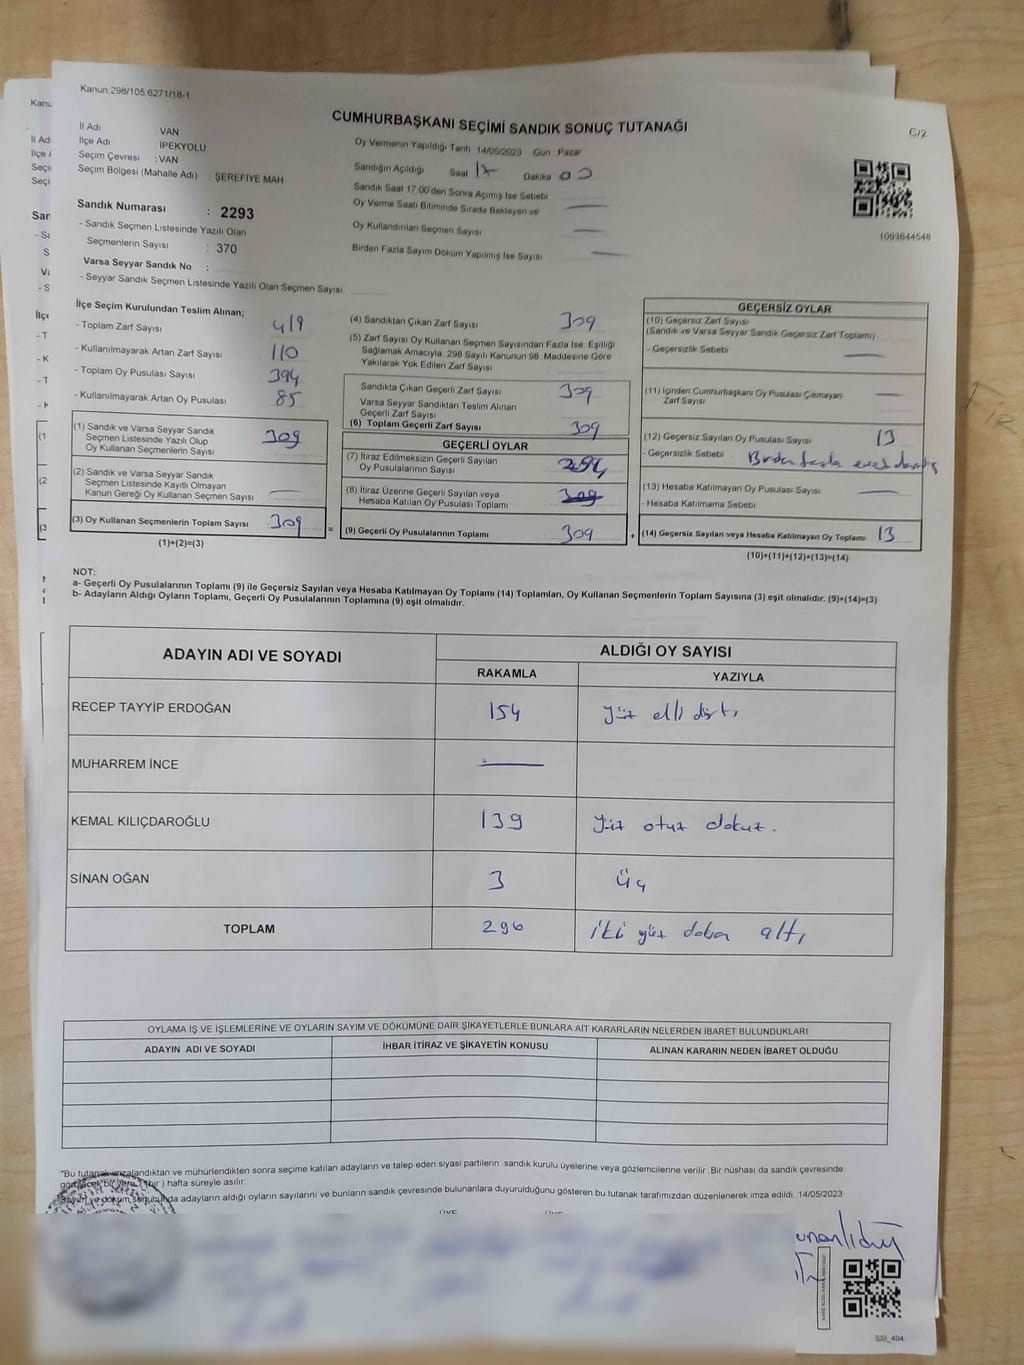 Kanun,298/105,6271/18-1
C/2
CUMHURBAŞKANI SEÇİMİ SANDIK SONUÇ TUTANAĞI
İl Adı VAN
İlçe Adı İPEKYOLU
Seçim Çevresi : VAN
Seçim Bölgesi (Mahalle Adı) : ŞEREFİYE MAH
Sandık Numarası : 2293
- Sandık Seçmen Listesinde Yazılı Olan
Seçmenlerin Sayısı : 370
Varsa Seyyar Sandık No :
- Seyyar Sandık Seçmen Listesinde Yazılı Olan Seçmen Sayısı
Oy Vermenin Yapıldığı Tarih 14/05/2023 Gün Pazar
Sandığın Açıldığı Saat 17 Dakika 00
Sandık Saat 17.00'den Sonra Açılmış İse Sebebi
Oy Verme Saati Bitiminde Sırada Bekleyen ve
Oy Kullandırılan Seçmen Sayısı
Birden Fazla Sayım Döküm Yapılmış İse Sayısı
1093844548
İlçe Seçim Kurulundan Teslim Alınan;
- Toplam Zarf Sayısı 419
- Kullanılmayarak Artan Zarf Sayısı 110
- Toplam Oy Pusulası Sayısı 394
- Kullanılmayarak Artan Oy Pusulası 85
(1) Sandık ve Varsa Seyyar Sandık
Seçmen Listesinde Yazılı Olup
Oy Kullanan Seçmenlerin Sayısı 309
(2) Sandık ve Varsa Seyyar Sandık
Seçmen Listesinde Kayıtlı Olmayan
Kanun Gereği Oy Kullanan Seçmen Sayısı
(3) Oy Kullanan Seçmenlerin Toplam Sayısı 309 =
(1)+(2)=(3)
(4) Sandıktan Çıkan Zarf Sayısı 309
(5) Zarf Sayısı Oy Kullanan Seçmen Sayısından Fazla İse, Eşitliği
Sağlamak Amacıyla, 298 Sayılı Kanunun 98. Maddesine Göre
Yakılarak Yok Edilen Zarf Sayısı
Sandıkta Çıkan Geçerli Zarf Sayısı 309
Varsa Seyyar Sandıktan Teslim Alınan
Geçerli Zarf Sayısı
(6) Toplam Geçerli Zarf Sayısı 309
GEÇERLİ OYLAR
(7) İtiraz Edilmeksizin Geçerli Sayılan
Oy Pusulalarının Sayısı
(8) İtiraz Üzerine Geçerli Sayılan veya
Hesaba Katılan Oy Pusulası Toplamı 309
(9) Geçerli Oy Pusulalarının Toplamı 309 +
GEÇERSİZ OYLAR
(10) Geçersiz Zarf Sayısı
(Sandık ve Varsa Seyyar Sandık Geçersiz Zarf Toplamı)
- Geçersizlik Sebebi
(11) İçinden Cumhurbaşkanı Oy Pusulası Çıkmayan
Zarf Sayısı
(12) Geçersiz Sayılan Oy Pusulası Sayısı 13
- Geçersizlik Sebebi Birden fazla evet
(13) Hesaba Katılmayan Oy Pusulası Sayısı
- Hesaba Katılmama Sebebi
(14) Geçersiz Sayılan veya Hesaba Katılmayan Oy Toplamı 13
(10)+(11)+(12)+(13)=(14)
NOT:
a- Geçerli Oy Pusulalarının Toplamı (9) ile Geçersiz Sayılan veya Hesaba Katılmayan Oy Toplamı (14) Toplamları, Oy Kullanan Seçmenlerin Toplam Sayısına (3) eşit olmalıdır. (9)+(14)=(3)
b- Adayların Aldığı Oyların Toplamı, Geçerli Oy Pusulalarının Toplamına (9) eşit olmalıdır.
ADAYIN ADI VE SOYADI ALDIĞI OY SAYISI
RAKAMLA YAZIYLA
RECEP TAYYİP ERDOĞAN 154 yüz elli dört
MUHARREM İNCE
KEMAL KILIÇDAROĞLU 139 yüz otuz dokuz.
SİNAN OĞAN 3 üç
TOPLAM 296 iki yüz doksan altı
OYLAMA İŞ VE İŞLEMLERİNE VE OYLARIN SAYIM VE DÖKÜMÜNE DAİR ŞİKAYETLERLE BUNLARA AİT KARARLARIN NELERDEN İBARET BULUNDUKLARI
ADAYIN ADI VE SOYADI İHBAR İTİRAZ VE ŞİKAYETİN KONUSU ALINAN KARARIN NEDEN İBARET OLDUĞU
"Bu tutanak imzalandıktan ve mühürlendikten sonra seçime katılan adayların ve talep eden siyasi partilerin sandık kurulu üyelerine veya gözlemcilerine verilir. Bir nüshası da sandık çevresinde
bir yere (bir) hafta süreyle asılır.
Sayım ve döküm sonucunda adayların aldığı oyların sayılarını ve bunların sandık çevresinde bulunanlara duyurulduğunu gösteren bu tutanak tarafımızdan düzenlenerek imza edildi. 14/05/2023
ÜYE
SSI_404